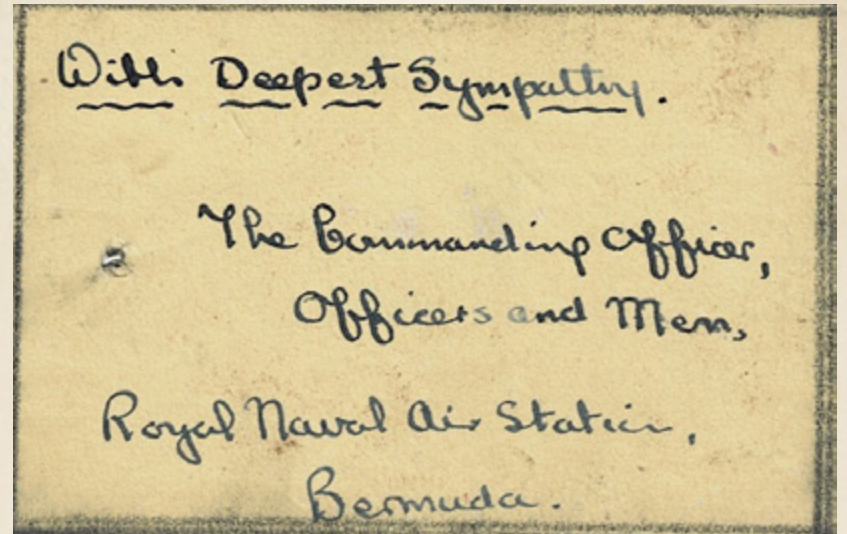 With Deepest Sympathy.
The Commanding Officer,
Officers and Men,
Royal Naval Air Station,
Bermuda.